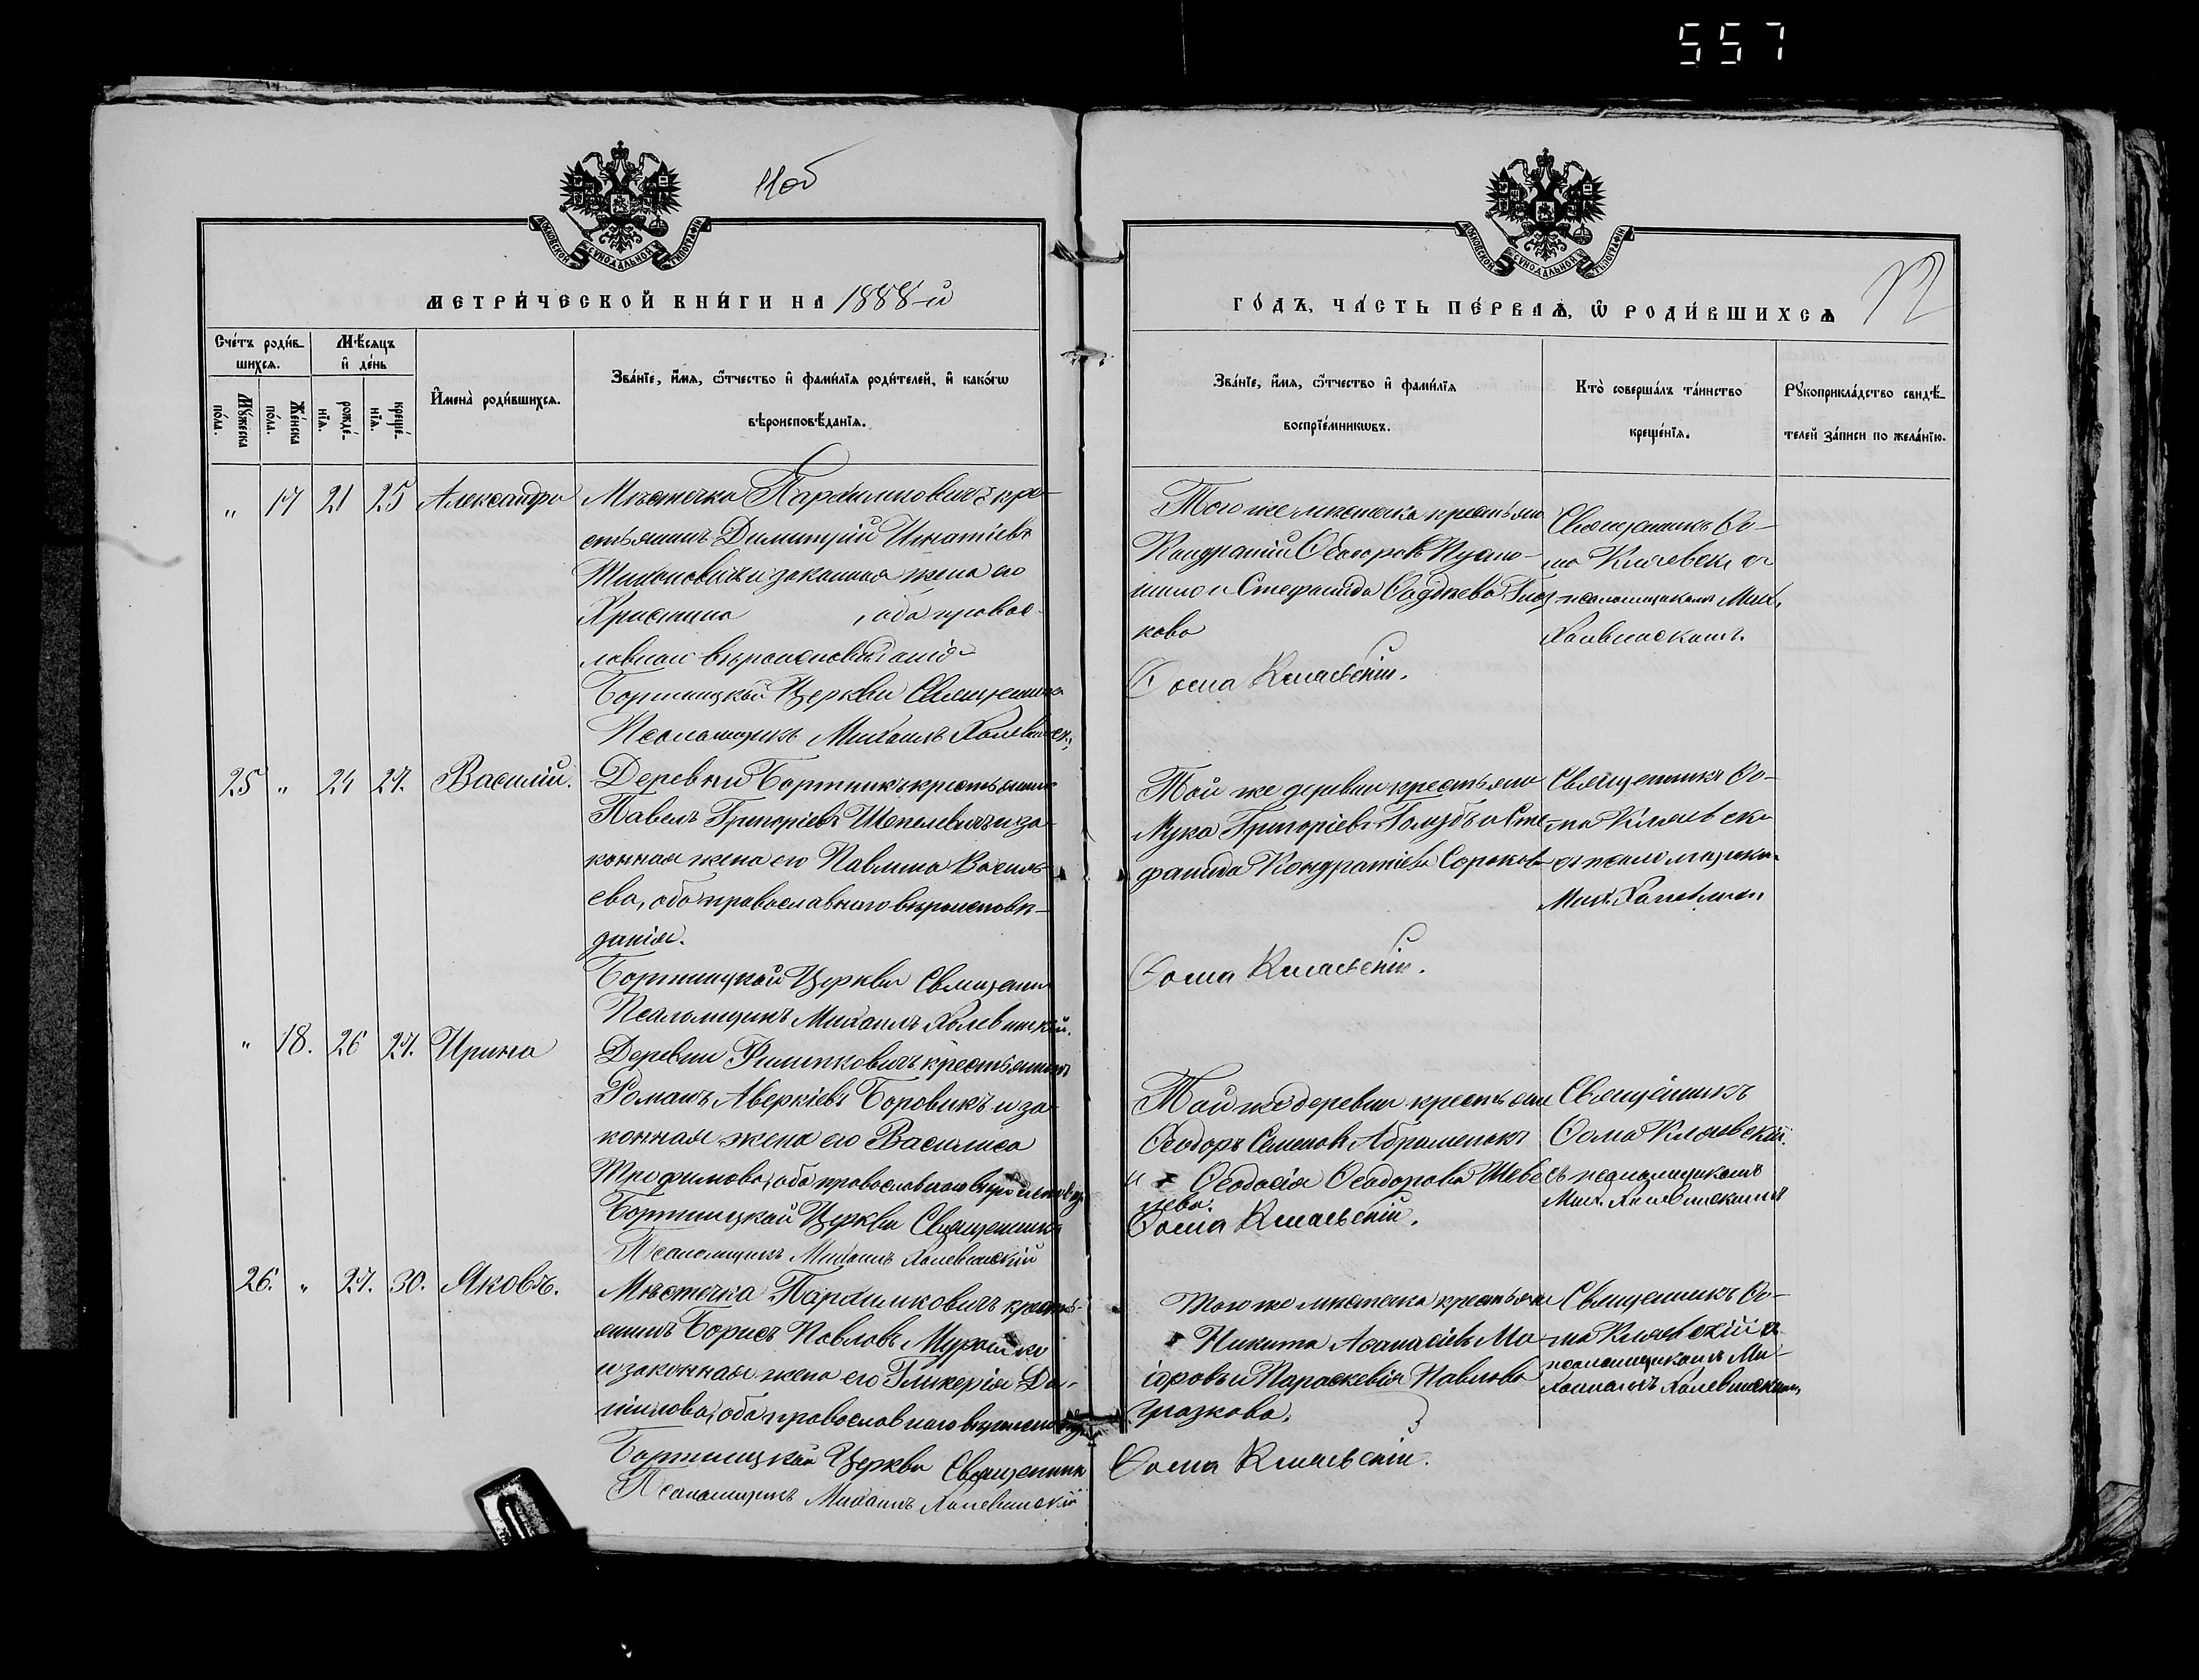 557
11об
МОСКОВСКОЙ СУНОДАЛЬНОЙ ТИПОГРАФІИ
МЕТРИ́ЧЕСКОЙ КНИ́ГИ НА 1888-й
Сче́тъ роди́в-
шихся.
Мѣ́сяцъ
и҆ де́нь
Му́жеска
по́ла.
Же́нска
по́ла.
рожде́-
нїя.
креще́-
нїя.
И҆мена̀ роди́вшихся.
Зва́нїе, и҆́мя, ѻ҆́тчество и҆ фами́лїя роди́телей, и҆ како́гѡ
вѣроисповѣ́данїя.
„ 17 21 25 Александра
Мѣстечка Пархимковичъ кре-
стьянинъ Димитрій Игнатіевъ
и законная жена его
Христина , оба правос-
лавнаго вѣроисповѣданія
Бортницкой Церкви Священникъ
Псаломщикъ Михаилъ Халевинск.,
25 „ 24 27. Василій.
Деревни Бортникъ крестьянинъ
Павелъ Григоріевъ Шепелевичъ и за-
конная жена его Павлина Василь-
ева, оба православнаго вѣроисповѣ-
данія.
Бортницкой Церкви Священн
Псаломщикъ Михаилъ Халевинскій.
„ 18. 26 27. Ирина
Деревни Филипковичъ крестьянинъ
Романъ Аверкіевъ Боровикъ и за-
конная жена его Василиса
Трофимова, оба православнаго вѣроисповѣд
Бортницкой Церкви Священникъ
Псаломщикъ Михаилъ Халевинскій
26. „ 27. 30. Яковъ.
Мѣстечка Пархимковичъ кресть-
янинъ Борисъ Павловъ Мурашко
и законная жена его Гликерія Да-
нилова, оба православнаго вѣроисповѣд
Бортницкой Церкви Священникъ
Псаломщикъ Михаилъ Халевинскій
МОСКОВСКОЙ СУНОДАЛЬНОЙ ТИПОГРАФІИ
ГО́ДЪ, ЧА́СТЬ ПЕ́РВАѦ, Ѡ҆ РОДИ́ВШИХСѦ
12
Зва́нїе, и҆́мя, ѻ҆́тчество и҆ фами́лїя
воспрїе́мникѡвъ.
Кто̀ соверша́лъ та́инство
креще́нїя.
Рꙋкоприкла́дство свидѣ́-
телей за́писи по жела́нїю.
Того же мѣстечка крестьяне
Кондратій Ѳеодоровъ
и Стефанида Ѳаддѣева
кова
Ѳома Клаевскій.
Священникъ Ѳо-
ма
псаломщикомъ Мих.
Халевинскимъ.
Той же деревни крестьяне
Лука Григоріевъ Голубъ и Сте-
фанида Кондратіева Сорокова
Ѳома Клаевскій.
Священникъ Ѳо-
ма Клаевскі
съ псаломщико
Мих. Халевинск
Той же деревни крестьяне
Ѳеодоръ Семеновъ Абраменокъ
и Ѳеодосія Ѳеодорова Шеве
лева.
Ѳома Клаевскій.
Священникъ
Ѳома Клаевскій.
съ псаломщикомъ
Мих. Халевинскимъ
Того же мѣстечка крестьяне
Никита Аѳанасіевъ Ма-
іоровъ и Параскевія Павлова
Ѳома Клаевскій.
Священникъ Ѳо-
ма Клаевскій съ
псаломщикомъ Ми-
хаиломъ Халевинскимъ